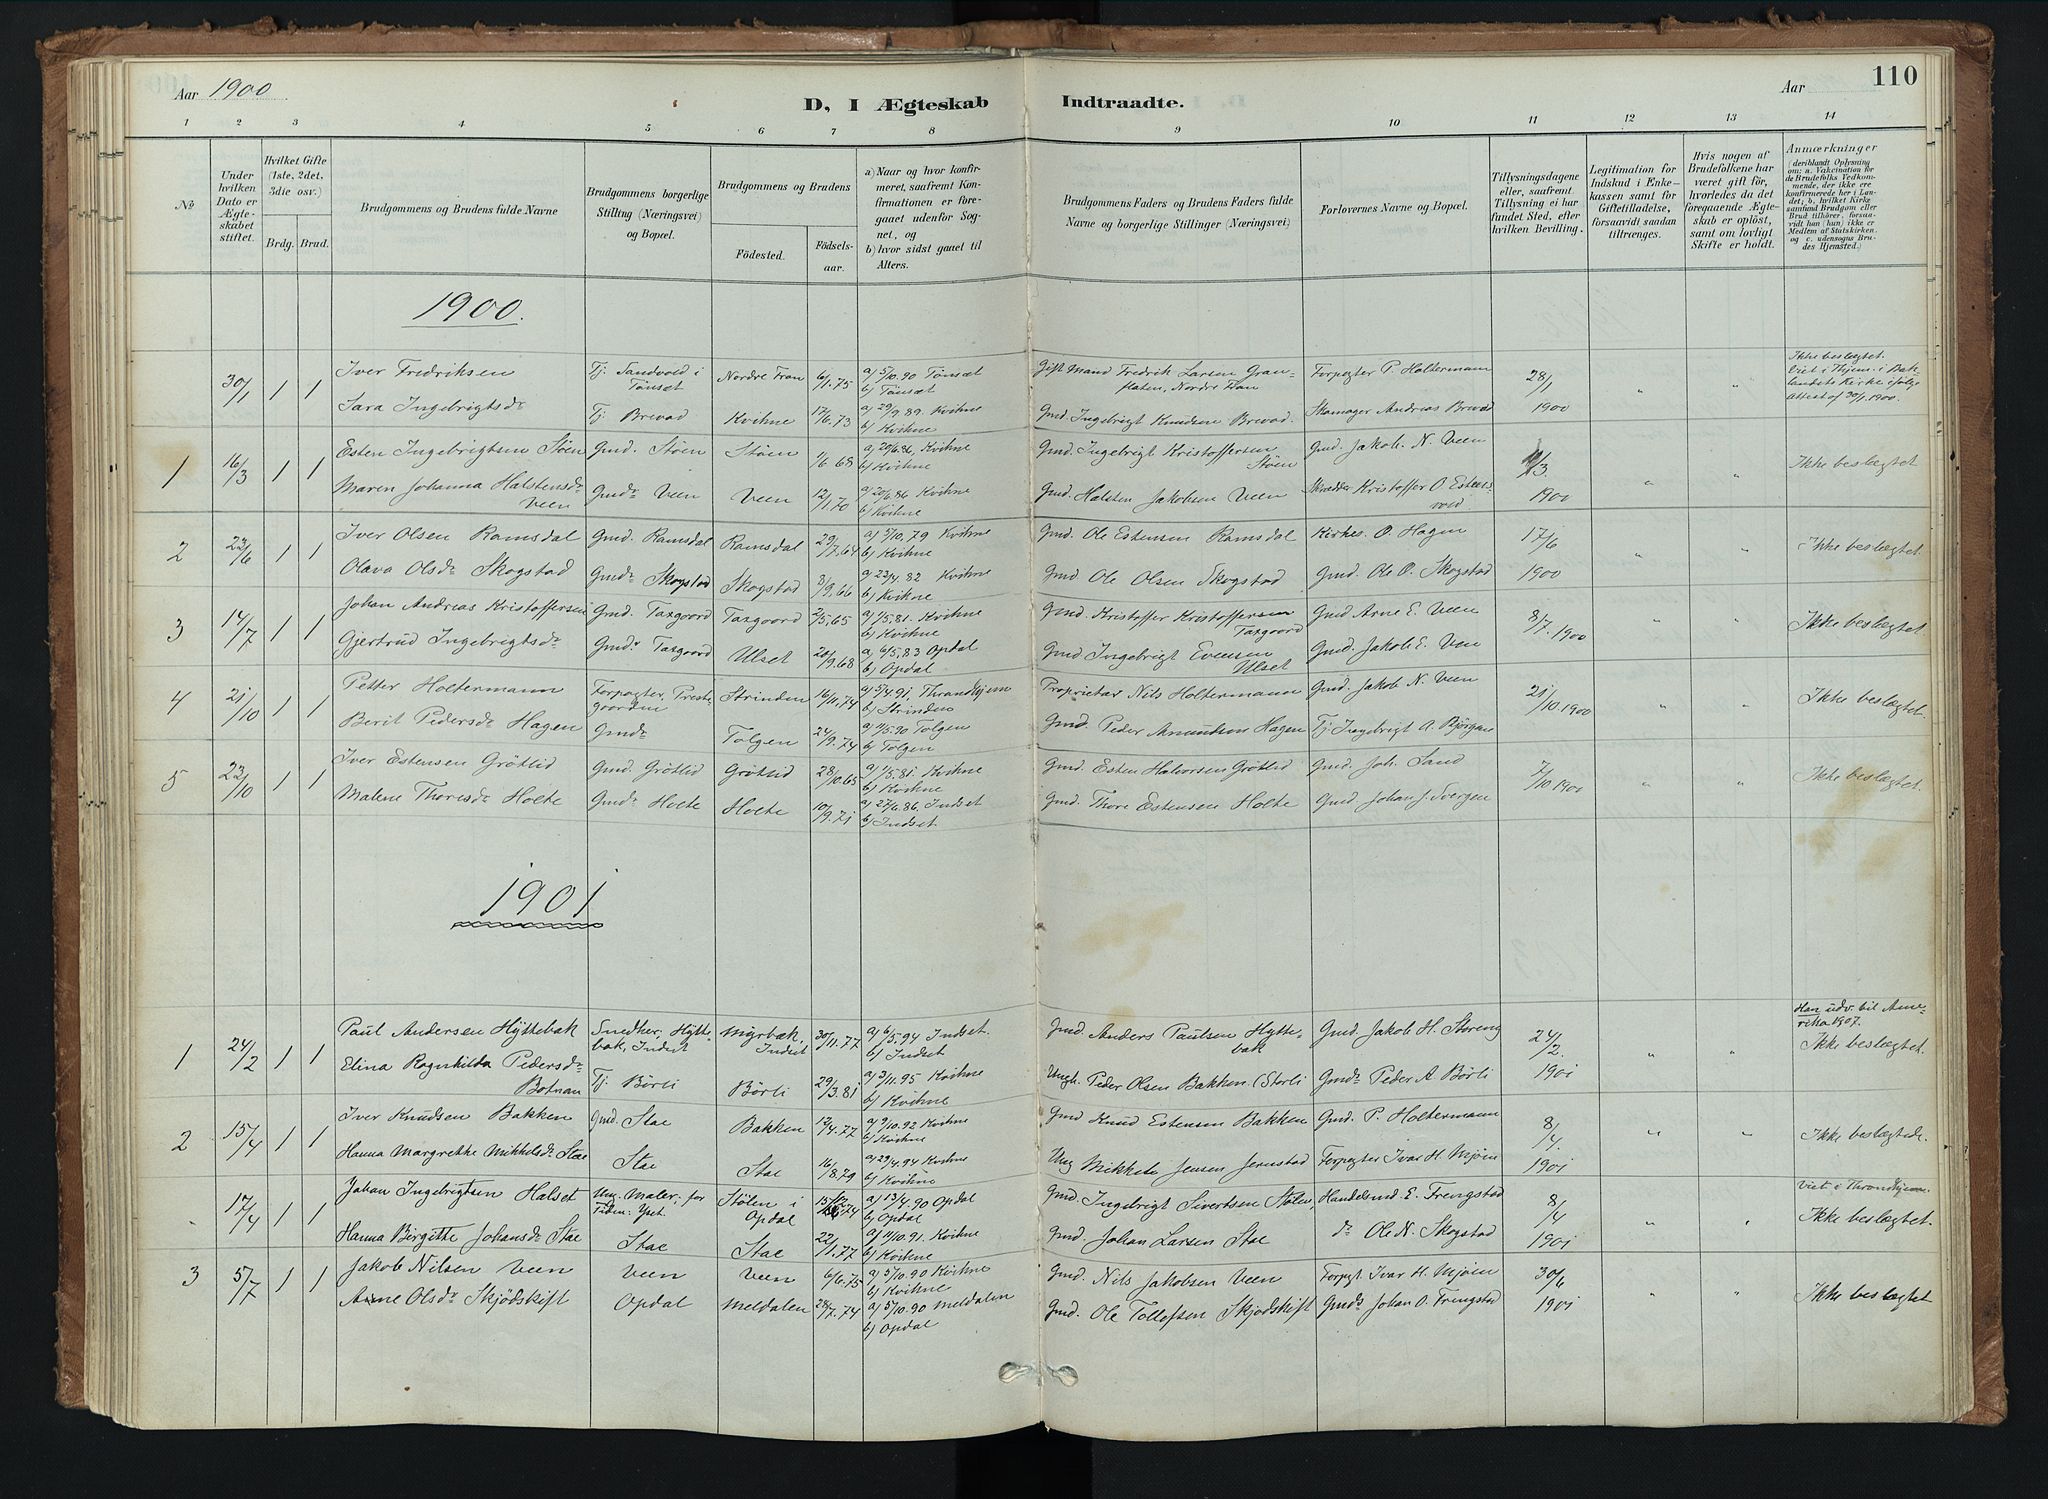 Aar 1900
D, I Ægteskab Indtraadte.
Aar 110
1 2 3 4 5 6 7 8 9 10 11 12 13 14
No
Under hvilken Dato er Ægteskabet stiftet.
Hvilket Gifte (1ste, 2det, 3die osv.)
Brdg. Brud.
Brudgommens og Brudens fulde Navne
Brudgommens borgerlige Stilling (Næringsvei) og Bopæl.
Brudgommens og Brudens
Födested. Födselsaar.
a) Naar og hvor konfirmeret, saafremt Konfirmationen er foregaaet udenfor Sognet, og
b) hvor sidst gaaet til Alters.
Brudgommens Faders og Brudens Faders fulde Navne og borgerlige Stillinger (Næringsvei)
Forlovernes Navne og Bopæl.
Tillysningsdagene eller, saafremt Tillysning ei har fundet Sted, efter hvilken Bevilling.
Legitimation for Indskud i Enkekassen samt for Giftetilladelse, forsaavidt saadan tiltrænges.
Hvis nogen af Brudefolkene har været gift för, hvorledes da det foregaaende Ægteskab er oplöst, samt om lovligt Skifte er holdt.
Anmærkninger (deriblandt Oplysning om: a. Vakcination for de Brudefolks Vedkommende, der ikke ere konfirmerede her i Landet; b. hvilket Kirkesamfund Brudgom eller Brud tilhörer, forsaavidt han (hun) ikke er Medlem af Statskirken. og c. udensogns Brudes Hjemsted.)
1900.
30/1 1 1 Iver Fredriksen Tj. Sandvold i Tönset Nordre Fron 6/1.75 a) 5/10.90 Tönset b) Tönset Gift Mand Fredrik Larsen Granflaten, Nordre Fron Forpagter P. Holtermann 28/1 1900 " " Ikke beslegtet. Viet i Thjem. i Baklandets Kirke ifölge Attest af 30/1.1900.
Sara Ingebrigtsdr Tj. Brevad Kvikne 17/6.73 a) 29/9.89. Kvikne b) Kvikne Gmd. Ingebrigt Knudsen Brevad. Skomager Andreas Brevad
1 16/3 1 1 Esten Ingebrigtsen Stöen Gmd. Stöen Stöen 1/6 68 a) 20/6.86, Kvikne b) Kvikne Gmd. Ingebrigt Kristoffersen Stöen Gmd. Jakob N. Veen /3 1900 " " Ikke beslægtet
Maren Johanna Halstensdr Veen Gmdr Veen Veen 12/1.70 a) 20/6.86 Kvikne b) Kvikne Gmd. Halsten Jakobsen Veen Skrædder Kristoffer O. Estensvold
2 22/6 1 1 Iver Olsen Ramsdal Gmd. Ramsdal Ramsdal 29/7.64 a) 5/10.79 Kvikne b) Kvikne Gmd. Ole Estensen Ramsdal Kirkes. O. Hagen 17/6 1900 " " Ikke beslægtet.
Olava Olsdr Skogstad Gmdr Skogstad Skogstad 8/9.66 a) 23/4.82 Kvikne b) Kvikne Gmd Ole Olsen Skogstad Gmd. Ole O. Skogstad
3 14/7 1 1 Johan Andreas Kristoffersen Gmd. Taxgaard Taxgaard 2/5,65 a) 1/5.81. Kvikne b) Kvikne Gmd. Kristoffer Kristoffersen Taxgaard Gmd Arne E. Veen 8/7.1900 " " Ikke beslægtet.
Gjertrud Ingebrigtsdr Gmdr Taxgaard Ulset 20/9.68 a) 6/5,83 Opdal b) Opdal Gmd Ingebrigt Evensen Ulset Gmd. Jakob E. Veen
4 21/10 1 1 Petter Holtermann Forpagter, Prestgaarden Strinden 16/11.74 a) 5/4.91. Throndhjem b) Strinden Proprietær Nils Holtermann Gmd. Jakob N. Veen 21/10.1900 " " Ikke beslægtet.
Berit Pedersdr Hagen Gmdr Tolgen 24/9.74 a) 1/5.90 Tolgen b) Tolgen Gmd. Peder Amundsen Hagen Tj. Ingebrigt A. Björgan
5 23/10 1 1 Iver Estensen Grötlid Gmd. Grötlid Grötlid 28/10.65 a) 1/5.81. Kvikne b) Kvikne Gmd. Esten Halvorsen Grötlid Gmd. Joh. Sand 7/10 1900 " " Ikke beslægtet.
Malene Thoresdr Holte Gmdr Holte Holte 10/9.71 a) 27/6.86. Indset b) Indset. Gmd. Thore Estensen Holte Gmd Johan J. Svergen
1901
1 24/2 1 1 Paul Andersen Hyttebak Snedker, Hyttebak, Indset Myrbæk, Indset 30/11.77 a) 6/5.94 Indset. b) Indset Gmd Anders Paulsen Hyttebak Gmd. Jakob H. Storeng 24/2. 1901 " " Han udv. til Amerika 1907. Ikke beslægtet.
Elina Ragnhilda Pedersdr Botnan Tj. Börli Börli 29/3.81 a) 3/11.95 Kvikne b) Kvikne Ungk. Peder Olsen Bakken (Storli Gmdr Peder A Börli
2 15/4 1 1 Iver Knudsen Bakken Gmd. Stae Bakken 12/4.77 a) 9/10.92 Kvikne b) Kvikne Gmd Knud Estensen Bakken Gmd. P. Holtermann 8/4. 1901 " " Ikke beslægtede.
Hanna Margrethe Mikkelsdr Stae Stae Stae 16/8.79 a) 29/4.94 Kvikne b) Kvikne Ung Mikkel Jensen Jernstad Forpagter Ivar H. Mjöen
17/4 1 1 Johan Ingebrigtsen Halset Um. Maler, for Tiden Yset. Stölen i Opdal 15/12.74 a) 13/4.90 Opdal b) Opdal Gmd. Ingebrigt Sivertsen Stölen, Handelsmd E. Frengstad 8/4 1901 " " Viet i Throndhjem. Ikke beslægtet.
Hanna Birgitte Johansdr Stae Stae Stae 22/1.77 a) 4/10.91. Kvikne b) Kvikne Gmd. Johan Larsen Stae dr Ole N. Skogstad
3 5/7 1 1 Jakob Nilsen Veen Veen Veen 6/6.75 a) 5/10.90 Kvikne b) Kvikne Gmd. Nils Jakobsen Veen Forpgt. Ivar H. Mjöen 30/6 1901 " " Ikke beslægtet
Anne Olsdr Skjödskift Opdal Meldalen 28/7.74 a) 5/10.90 Meldalen b) Opdal Gmd. Ole Tollefsen Skjödskift Gmdr Johan O. Frengstad